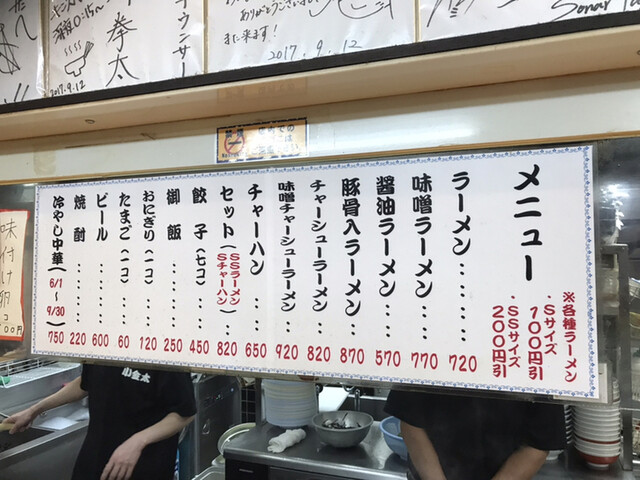 ニンニク
深夜0:15〜
拳太
2017.9.12
アナウンサー
ありがとうございます
また来ます!
2017.9.12
メニュー
※各種ラーメン
・Sサイズ
100円引
・SSサイズ
200円引
ラーメン・・・・・・720
味噌ラーメン・・・・770
醤油ラーメン・・・・570
豚骨入ラーメン・・・870
チャーシューラーメン・・820
味噌チャーシューラーメン・・920
チャーハン・・・・650
セット(SSラーメン Sチャーハン)・・820
餃子(七コ)・・・450
御飯・・・・・250
おにぎり(一コ)・・・120
たまご(一コ)・・・60
ビール・・・・・600
焼酎・・・・・220
冷やし中華(6/1〜9/30)750
味付け卵